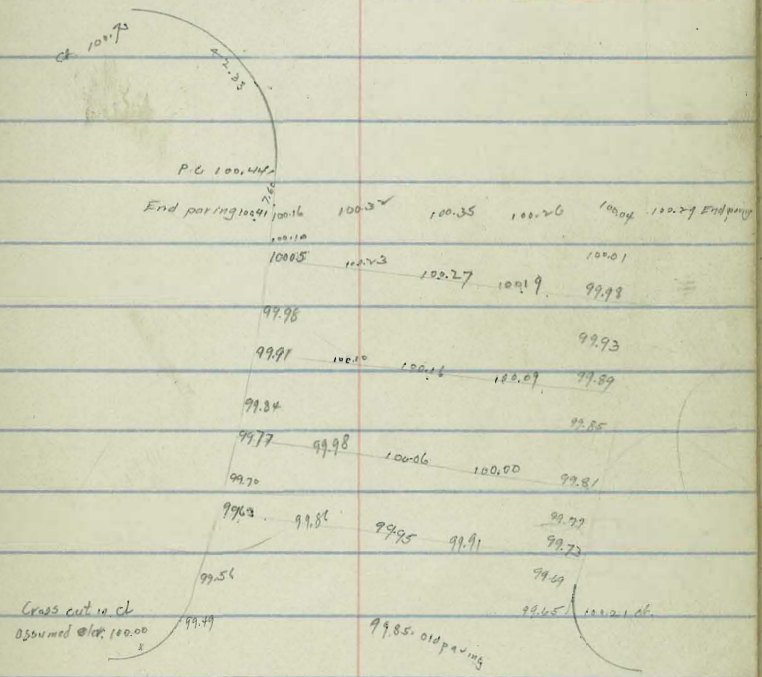 ct 100.43
42.33
P.C 100.44
7.60
End paving 100.41 100.16 100.32 100.35 100.26 100.04 100.29 End paving
100.10 100.01
100.05 100.23 100.27 100.19 99.98
99.98 99.93
99.91 100.10 100.16 100.09 99.89
99.84 99.85
99.77 99.98 100.06 100.00 99.81
99.70 99.77
99.63 99.86 99.95 99.91 99.73
99.56 99.69
Cross cut in ct 99.65 100.21 ct.
assumed elev. 100.00 99.49 99.85 old paving
x